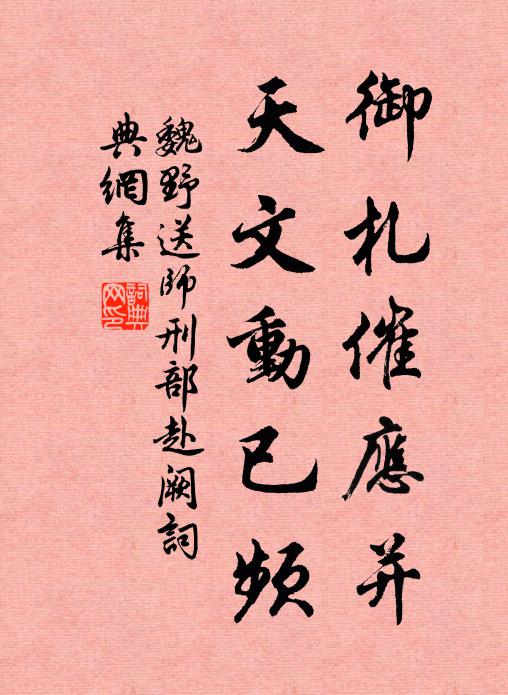 御札催應并
天文動已頻
魏野送師刑部赴阙詞
典網集
詞典網印